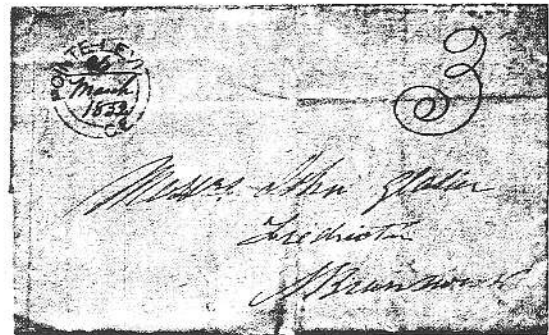 POINTE-LEVI
26
March
1852
3
Messrs John Glasier
Fredricton
N Brunswick